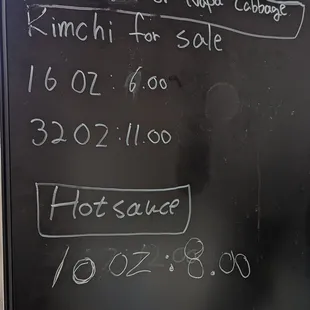 Napa Cabbage
Kimchi for sale
16 OZ: 6.00
32 OZ: 11.00
Hotsauce
10 OZ: 8.00